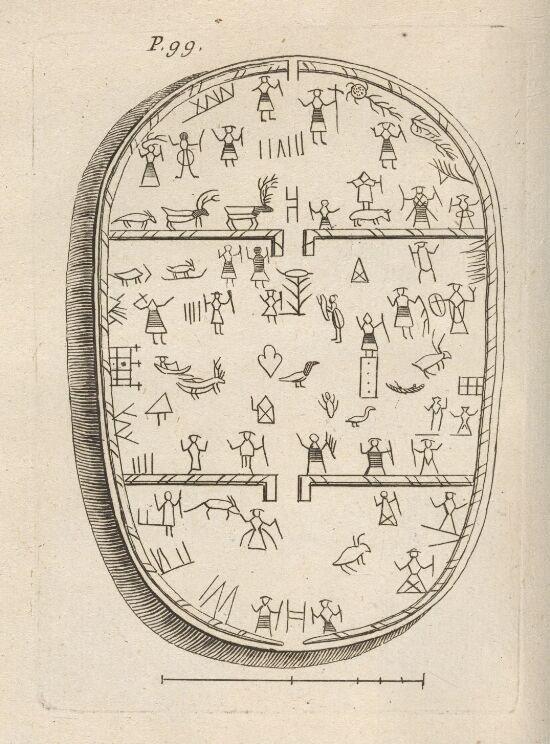 P. 99.